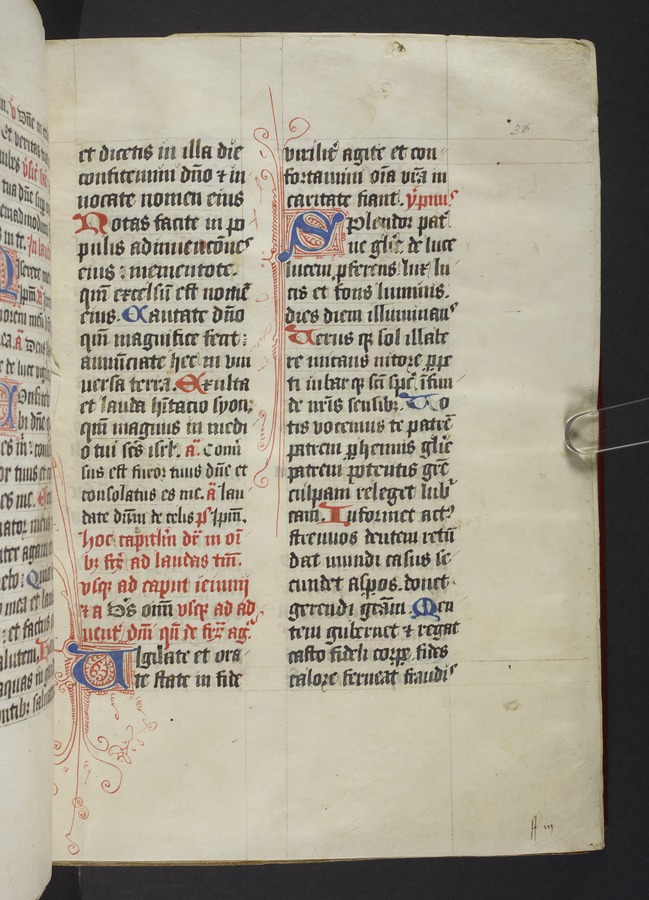 et dicetis in illa die
confitemini dño ⁊ in
uocate nomen eius
Notas facite in po
pulis adinuenciones
eius : mementote
qm̃ excelsũ est nomẽ
eius. Cantate dño
qm̃ magnifice fecit :
annũciate hec in vni
uersa terra. Exulta
et lauda hĩtacio syon :
qm̃ magnus in medi
o tui scs̃ isrl̃. a. Conũ
sus est furor tuus dñe et
consolatus es me. a lau
date dũm de celis ps̃ ipm̃.
hoc capitlm̃ dr̃ in oĩ
bʒ ferijs ad laudas tm̃.
vsqʒ ad caput ieiunij
⁊ a Ds̃ oĩm vsqʒ ad ad
uent̃ dm̃ qñ de fer̃ ag̃.
Uigilate et ora
te state in fide
uirilit̃ agite et con
fortamini oĩa vr̃a in
caritate fiant. ypnus
Splendor pat̃
ne glĩe de luce
lucem pferens lux lu
cis et fons luminis.
dies diem illuminans
Uerus qʒ sol illabe
re micans nitore ppe
ti iubar qʒ sc̃i spc̃ ĩfun
de nr̃is sensibʒ. Uo
tis vocemus te patrẽ
patrem phennis glĩe
patrem potentis grẽ
culpam releget lub̃
cam. Informet act̃
strenuos dentem retũ
dat inuidi casus se
cundet aspos. donet
gerendi grãm. Men
tem gubernet ⁊ regat
casto fideli corpe. fides
calore ferueat fraudis